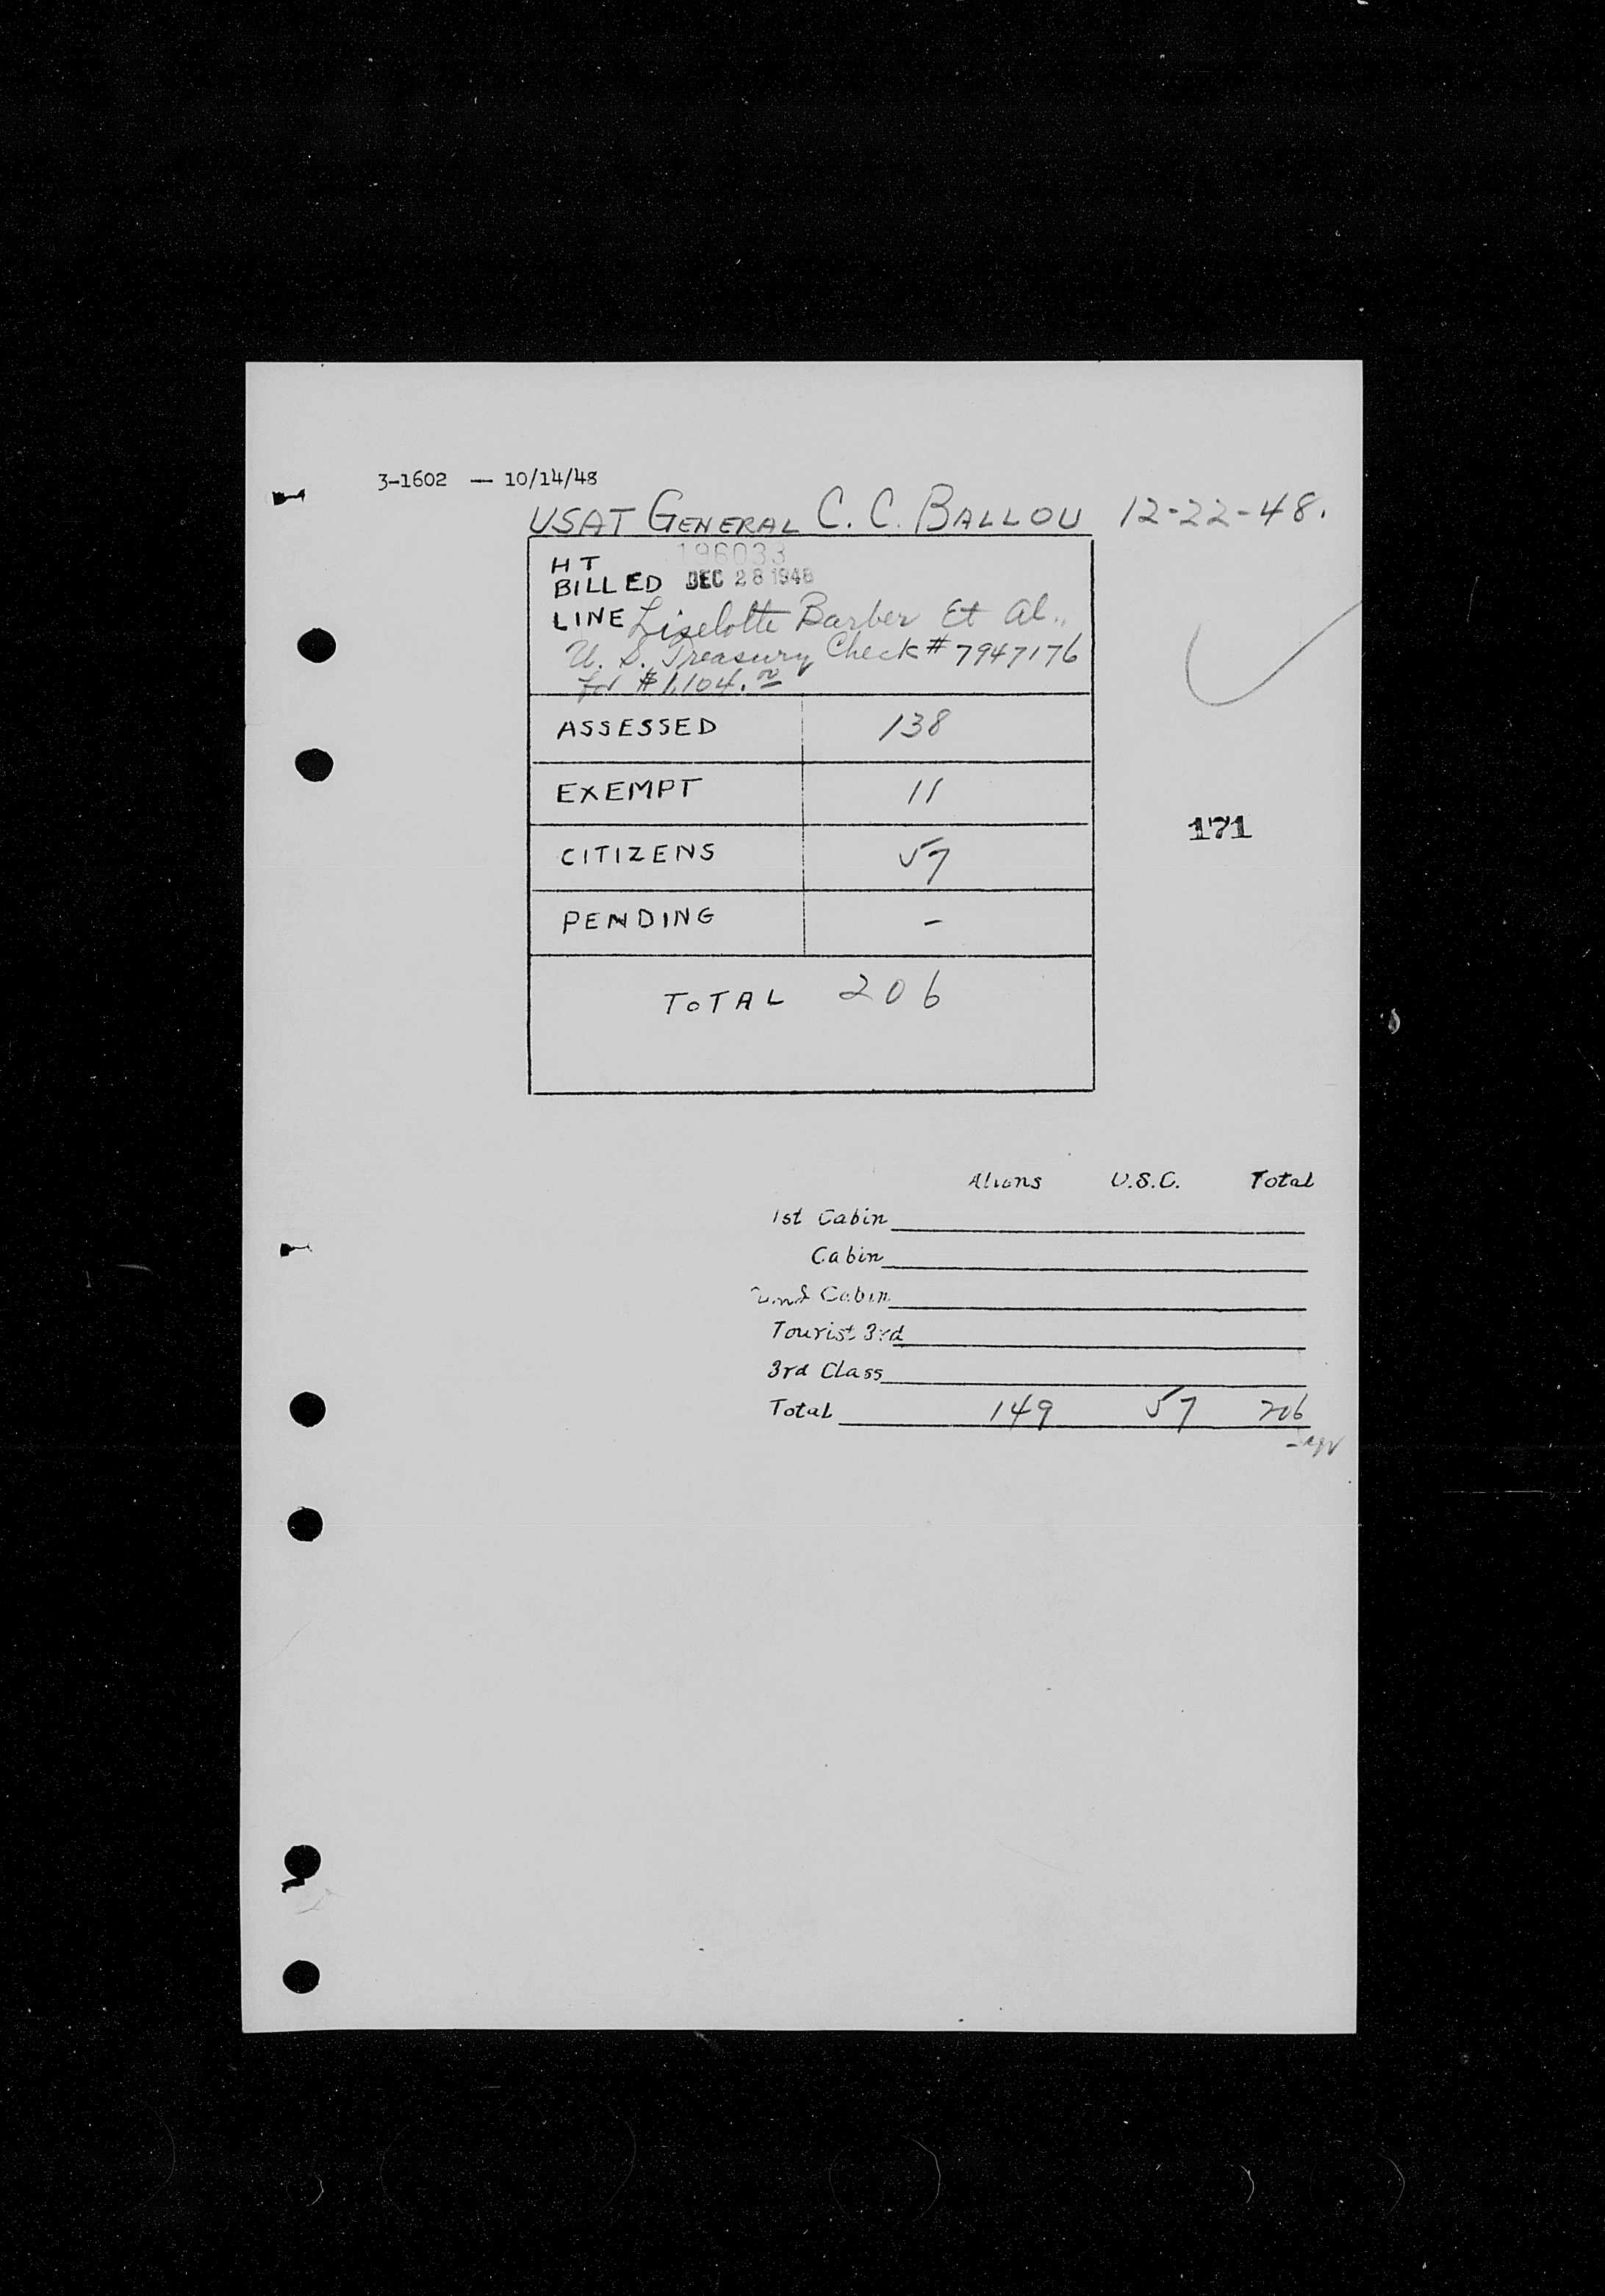 3-1602 — 10/14/48
USAT GENERAL C. C. BALLOU 12-22-48.
196033
HT
BILLED DEC 28 1948
LINE Liselotte Barber Et Al.,
U. S. Treasury Check # 7947176
for $1,104.00
ASSESSED 138
EXEMPT 11
171
CITIZENS 57
PENDING -
TOTAL 206
Aliens U.S.C. Total
1st Cabin
Cabin
2nd Cabin
Tourist 3rd
3rd Class
Total 149 57 206